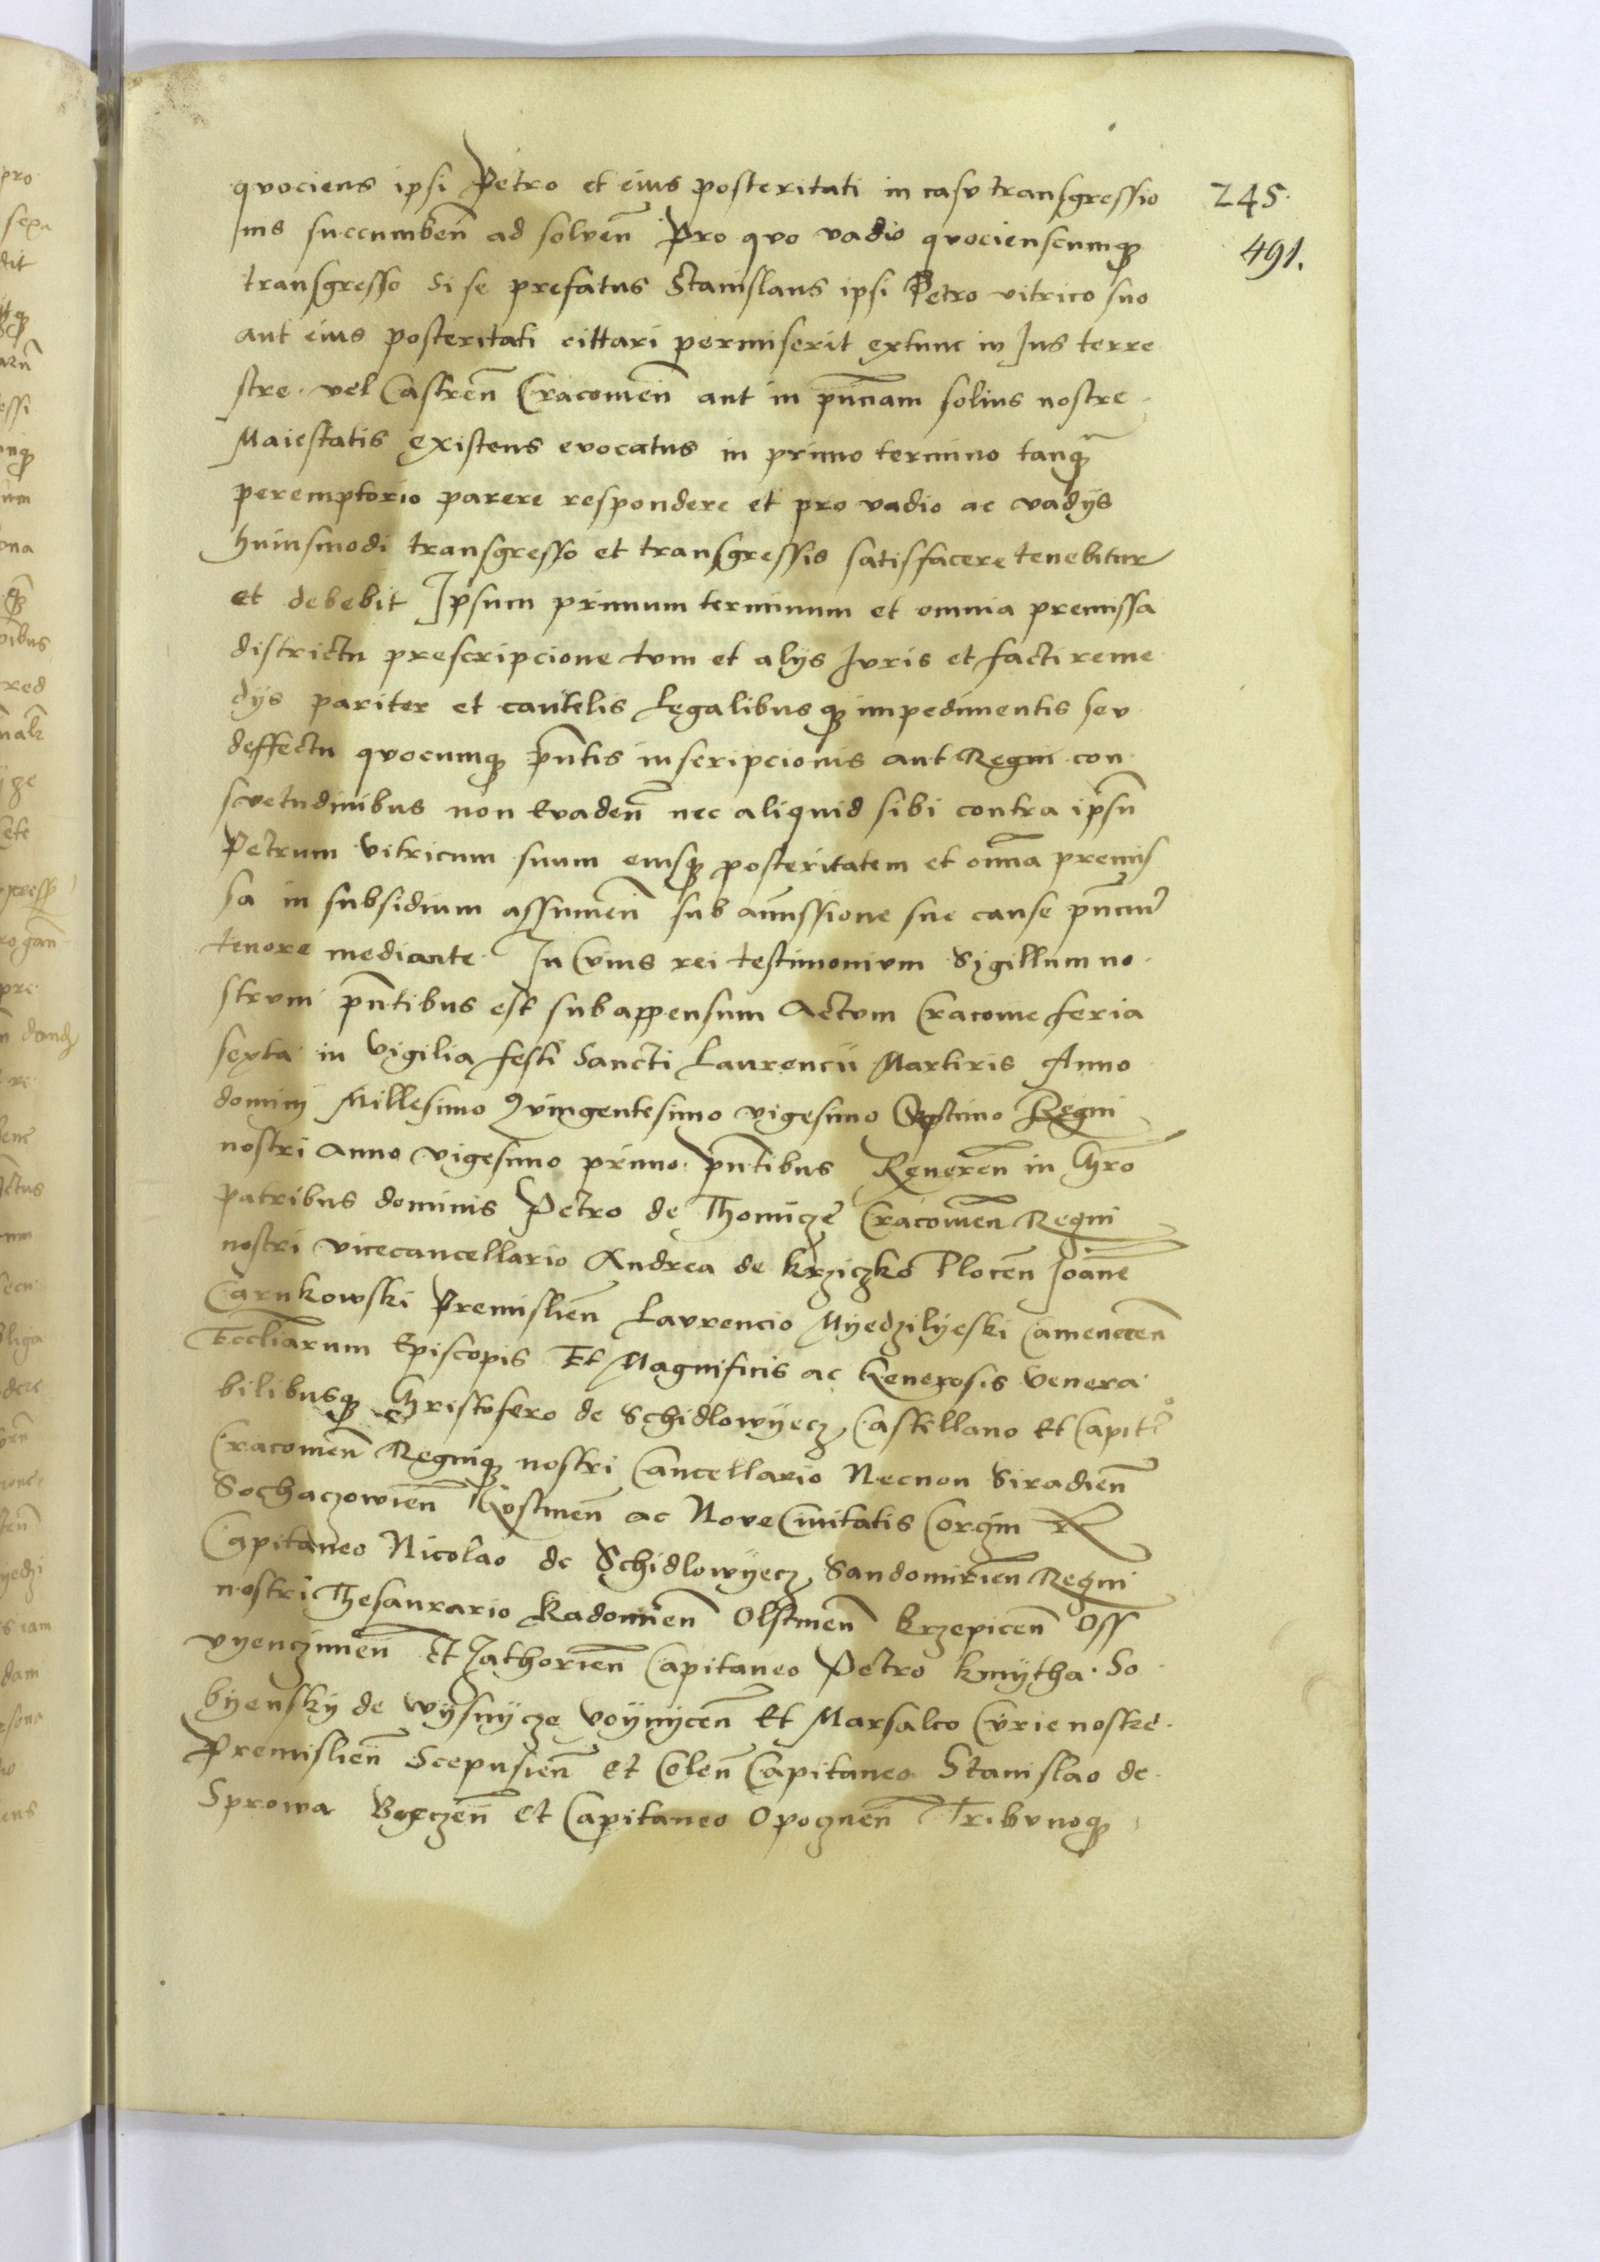 quociens ipsi Petro et eius posteritati in casu transgressio 245.
nis succumben̄ ad solven̄ Pro quo vadio quocienscumq̄ 491.
transgresso Si se prefatus Stanislaus ipsi Petro vitrico suo
aut eius posteritati cittari permiserit extunc in Ius terre
stre vel Castren̄ Cracovien̄ aut in pn̄ciam solius nostre
Maiestatis existens evocatus in primo termino tanq̄
peremptorio parere respondere et pro vadio ac vadÿs
huiusmodi transgresso et transgressis satisfacere tenebitur
et debebit Ipsum primum terminum et omnia premissa
districtu prescripcione tum et alÿs Iuris et facti reme
dÿs pariter et cautelis Legalibusq̄ impedimentis seu
deffectu quocumq̄ pn̄tis inscripcionis aut Regni con
svetudinibus non Evaden̄ nec aliquid sibi contra ipsū
Petrum Vitricum suum eiusq̄ posteritatem et om̄ia premis
sa in subsidium assumen̄ sub amissione sue cause
tenore mediante In Cuius rei testimonium Sigillum no
strum pn̄tibus est subappensum Actum Cracovie feria
sexta in Vigilia festi Sancti Laurencii Martiris Anno
domini Millesimo Quingentesimo vigesimo Septimo Regni
nostri Anno vigesimo primo pn̄tibus Reveren̄ in Chr̄o
patribus dominis Petro de Thomicze Cracovien̄ Regni
nostri vicecancellario Andrea de Krziczko Plocen̄ Ioan̄e
Carnkowski Premislien̄ Laurencio Myedzilÿeski Camenecen̄
Eccl̄iarum Episcopis Et Magnificis ac Generosis Venera
bilibusq̄ Christofero de Schidlowÿecz Castellano Et Capit̄o
Cracovien̄ Regniq̄ nostri Cancellario Necnon Siradien̄
Sochaczowien̄ Gostinen̄ ac Nove Civitatis Corczin
Capitaneo Nicolao de Schidlowÿecz Sandomirien̄ Regni
nostri Thesaurario Radomien̄ Olstinen̄ Krzepicen̄ Oss
vyencimen̄ Et Zathorien̄ Capitaneo Petro Kmÿtha So
bÿenskÿ de Wÿsnÿcze Voÿnÿcen̄ Et Marsalco Curie nostre
Premislien̄ Scepusien̄ et Colen̄ Capitaneo Stanislao de
Sprowa Byeczen̄ Et Capitaneo Opocznen̄ Tribunoq̄